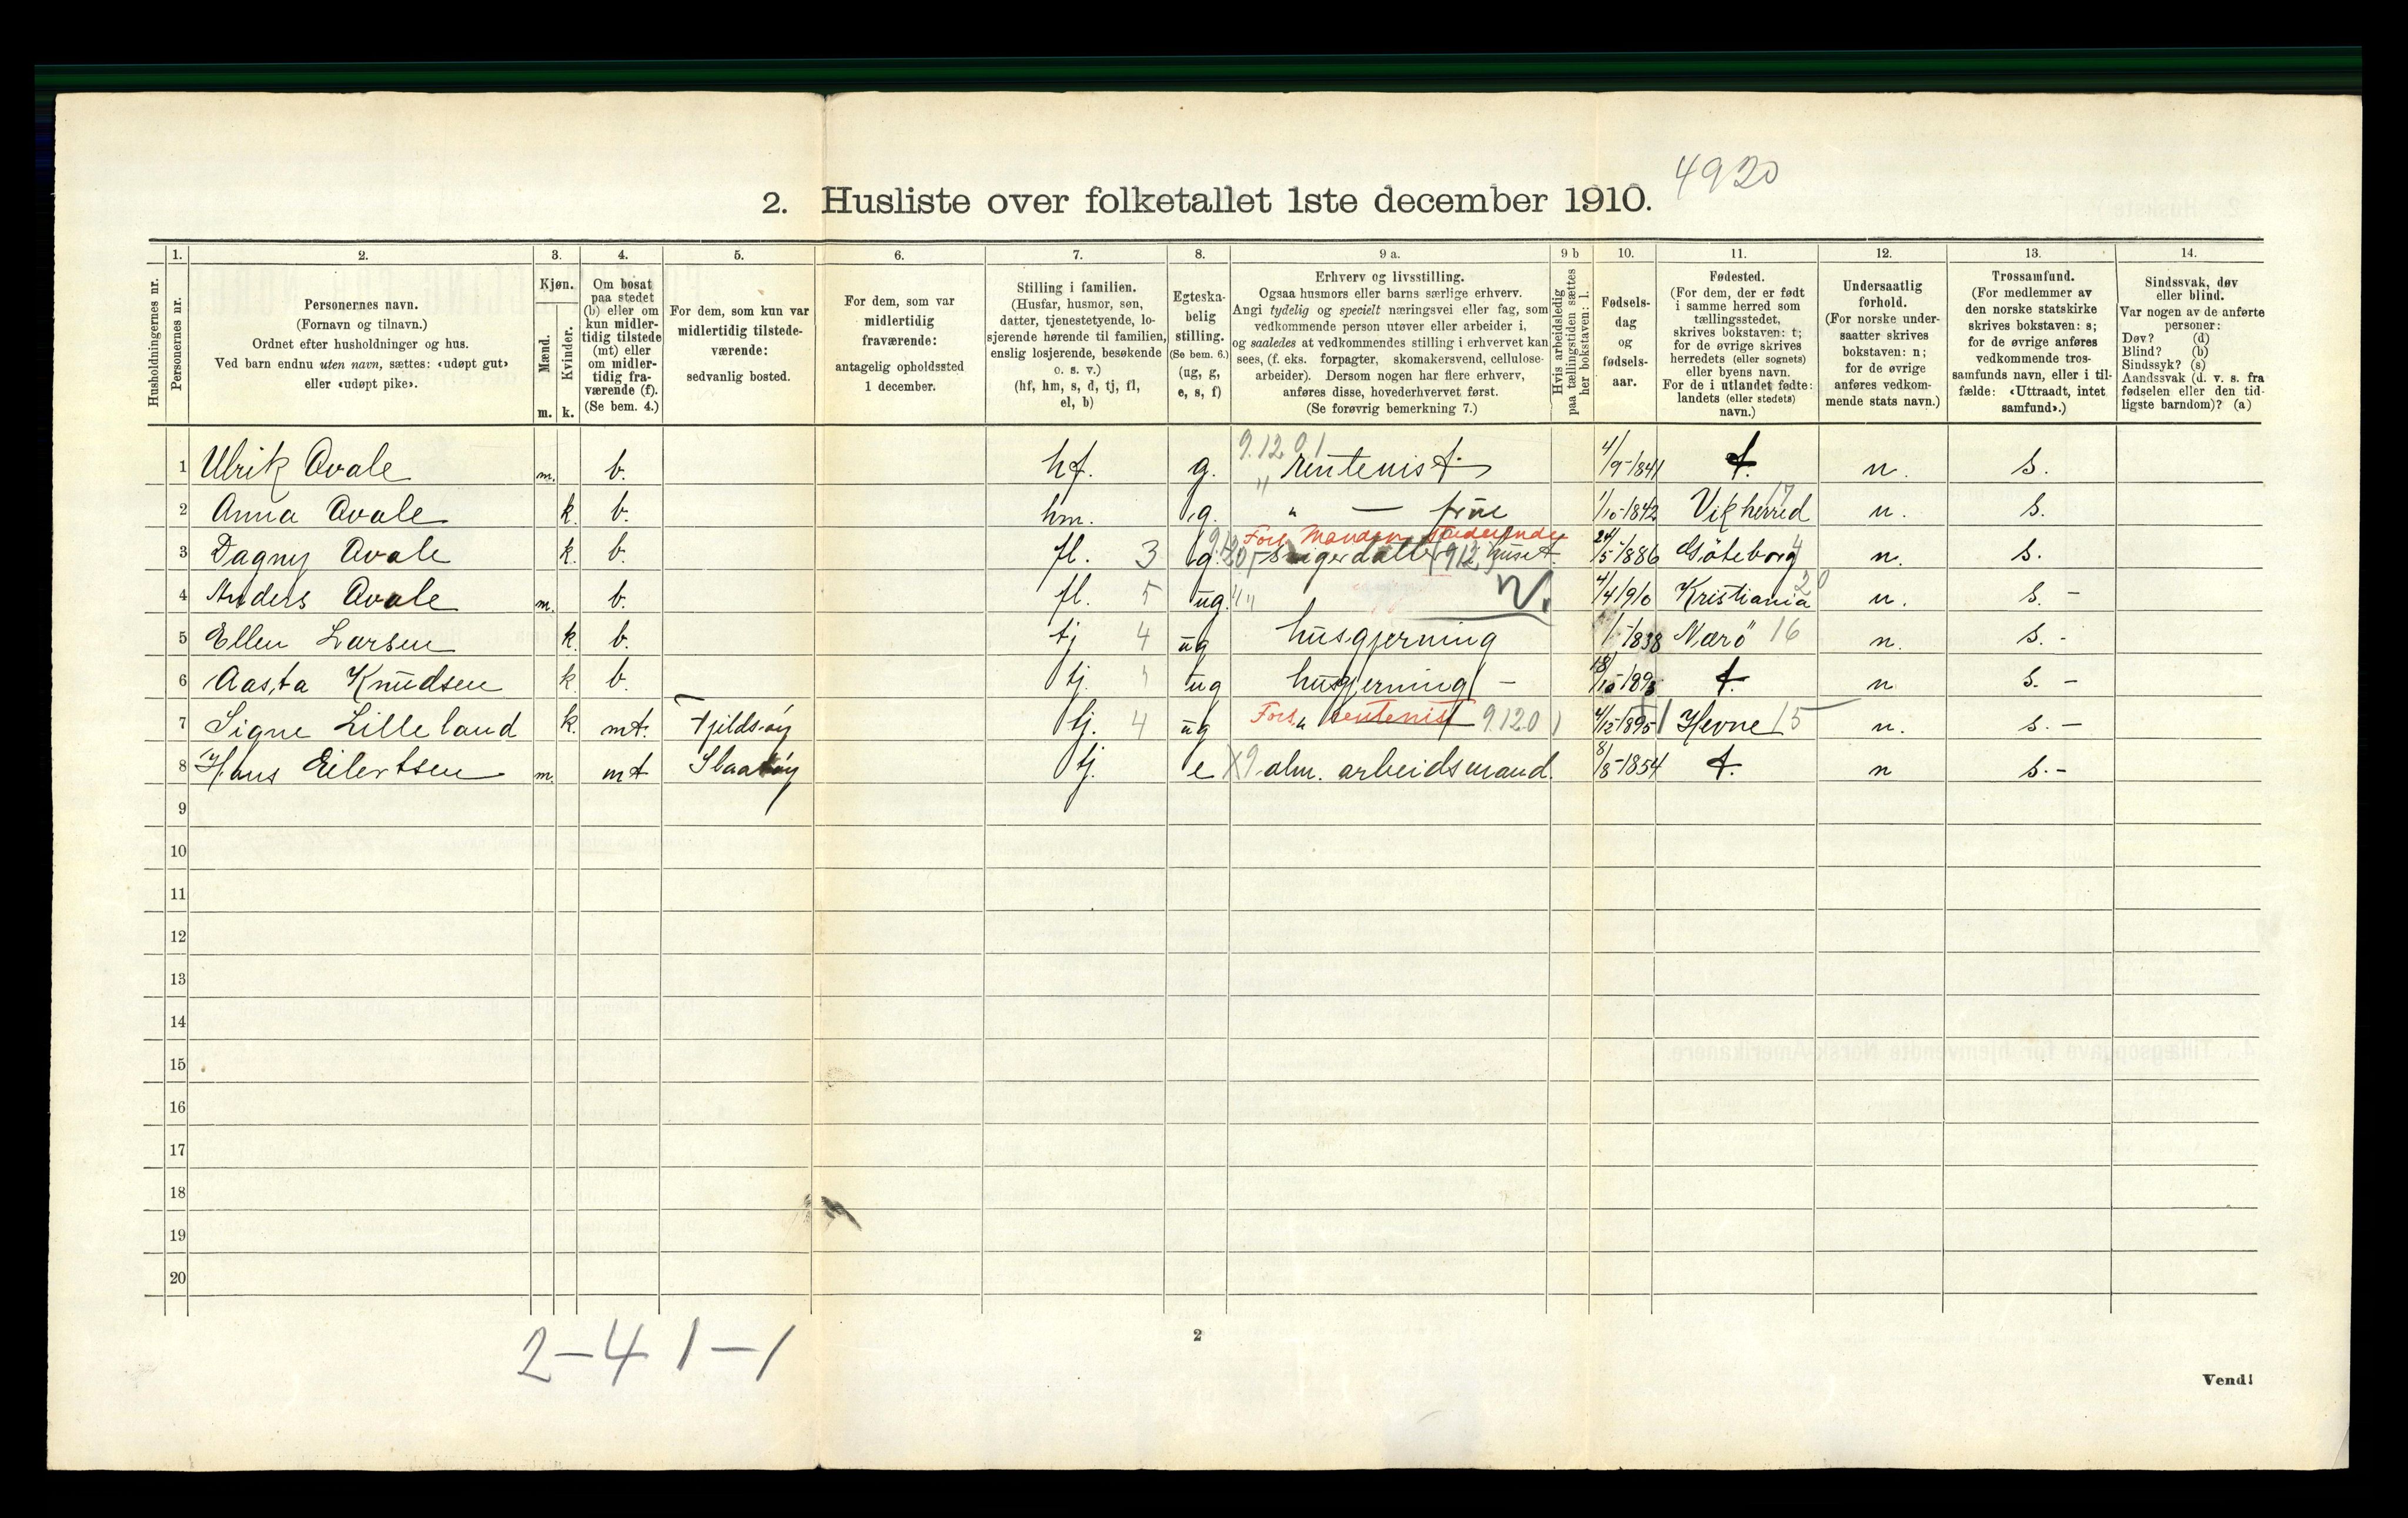 4920
2. Husliste over folketallet 1ste december 1910.
Husholdningernes nr.
1. Personernes nr.
2. Personernes navn.
(Fornavn og tilnavn.)
Ordnet efter husholdninger og hus.
Ved barn endnu uten navn, sættes: «udøpt gut»
eller «udøpt pike».
3. Kjøn.
Mænd. m.
Kvinder. k.
4. Om bosat
paa stedet
(b) eller om
kun midler-
tidig tilstede
(mt) eller
om midler-
tidig fra-
værende (f).
(Se bem. 4.)
5. For dem, som kun var
midlertidig tilstede-
værende:
sedvanlig bosted.
6. For dem, som var
midlertidig
fraværende:
antagelig opholdssted
1 december.
7. Stilling i familien.
(Husfar, husmor, søn,
datter, tjenestetyende, lo-
sjerende hørende til familien,
enslig losjerende, besøkende
o. s. v.)
(hf, hm, s, d, tj, fl,
el, b)
8. Egteska-
belig
stilling.
(Se bem. 6.)
(ug, g,
e, s, f)
9 a. Erhverv og livsstilling.
Ogsaa husmors eller barns særlige erhverv.
Angi tydelig og specielt næringsvei eller fag, som
vedkommende person utøver eller arbeider i,
og saaledes at vedkommendes stilling i erhvervet kan
sees, (f. eks. forpagter, skomakersvend, cellulose-
arbeider). Dersom nogen har flere erhverv,
anføres disse, hovederhvervet først.
(Se forøvrig bemerkning 7.)
9 b Hvis arbeidsledig
paa tællingstiden sættes
her bokstaven: l.
10. Fødsels-
dag
og
fødsels-
aar.
11. Fødested.
(For dem, der er født
i samme herred som
tællingsstedet,
skrives bokstaven: t;
for de øvrige skrives
herredets (eller sognets)
eller byens navn.
For de i utlandet fødte:
landets (eller stedets)
navn.)
12. Undersaatlig
forhold.
(For norske under-
saatter skrives
bokstaven: n;
for de øvrige
anføres vedkom-
mende stats navn.)
13. Trossamfund.
(For medlemmer av
den norske statskirke
skrives bokstaven: s;
for de øvrige anføres
vedkommende tros-
samfunds navn, eller i til-
fælde: «Uttraadt, intet
samfund».)
14. Sindssvak, døv
eller blind.
Var nogen av de anførte
personer:
Døv? (d)
Blind? (b)
Sindssyk? (s)
Aandssvak (d. v. s. fra
fødselen eller den tid-
ligste barndom)? (a)
1 Ulrik Qvale m. b. hf. g. 9.12.01 " rentenist 4/9-1841 t. n. s.
2 Anna Qvale k. b. hm. g. " — frue 1/10-1842 Vik herred 17 n. s.
3 Dagny Qvale k. b. fl. 3 g. 24/5-1886 Göteborg 4 n. s.
4 Anders Qvale m. b. fl. 5 ug. 4/4 1910 Kristiania 20 n. s. -
5 Ellen Larsen k. b. tj 4 ug husgjerning 1838 Nærö 16 n. s. -
6 Aasta Knudsen k. b. tj. ug husgjerning - 18/10 1893 t. n s. -
7 Signe Lilleland k. mt. Fjeldsöy tj. 4 ug Fors. rentenist 9.12.01 4/12 1895 Hevne 15 n. s. -
8 Hans Eilertsen m. mt tj. e alm. arbeidsmand. 8/8-1854 t. n s. -
9
10
11
12
13
14
15
16
17
18
19
20
2-4 1-1
2
Vend!